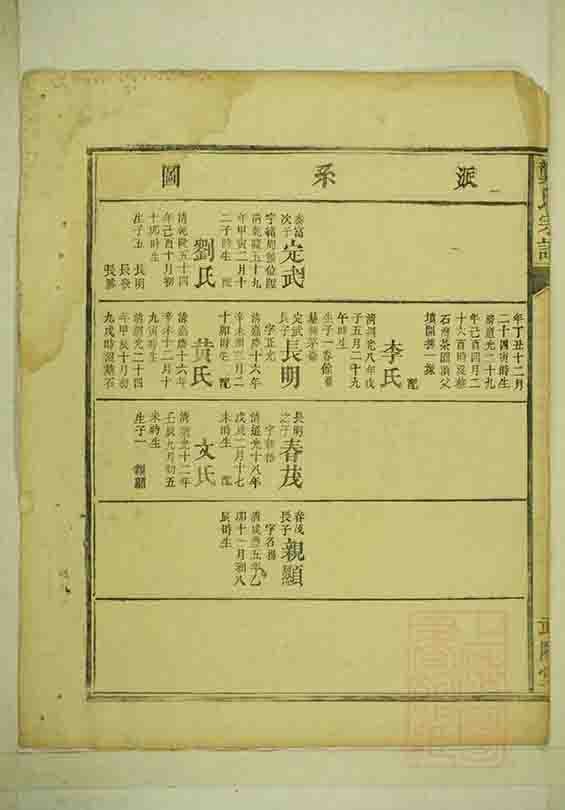 派系圖
泰富
次子
定武
清乾隆五十九
年甲寅二月十
二子時生 配
劉氏
清乾隆五十四
年己酉十月初
十卯時生
生子五 長明
長發
年丁丑十二月
二十四寅時生
清道光二十九
年己酉四月二
十六酉時沒
配
李氏
清道光八年戊
子五月二十九
午時生
定武
長子
長明
字正光
清嘉慶十六年
辛未三月二
十卯時生 配
黄氏
清嘉慶十六年
辛未十二月十
九寅時生
清道光二十四
年甲辰十月初
長明
之子
春茂
清道光十八年
戊戌二月十七
未時生 配
文氏
清道光十二年
壬辰九月初五
未時生
生子一 親顯
春茂
長子
親顯
字名揚
清咸豐五年乙
卯十一月初八
辰時生